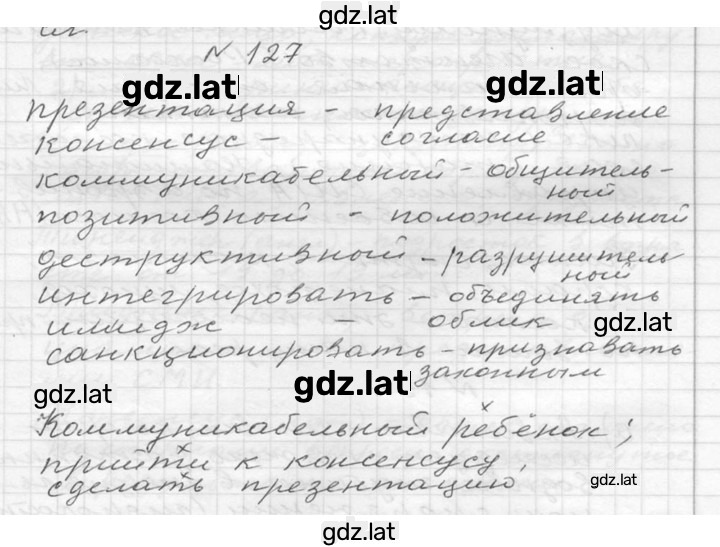 gdz.lat
№ 127
gdz.lat gdz.lat
презентация - представление
консенсус - согласие
коммуникабельный - общитель-
ный
позитивный - положительный
деструктивный - разрушитель
ный
интегрировать - объединять
имидж - облик
gdz.lat
санкционировать - признавать
законным
gdz.lat gdz.lat
Коммуникабельный ребёнок;
прийти к консенсусу,
сделать презентацию
gdz.lat
gdz.lat